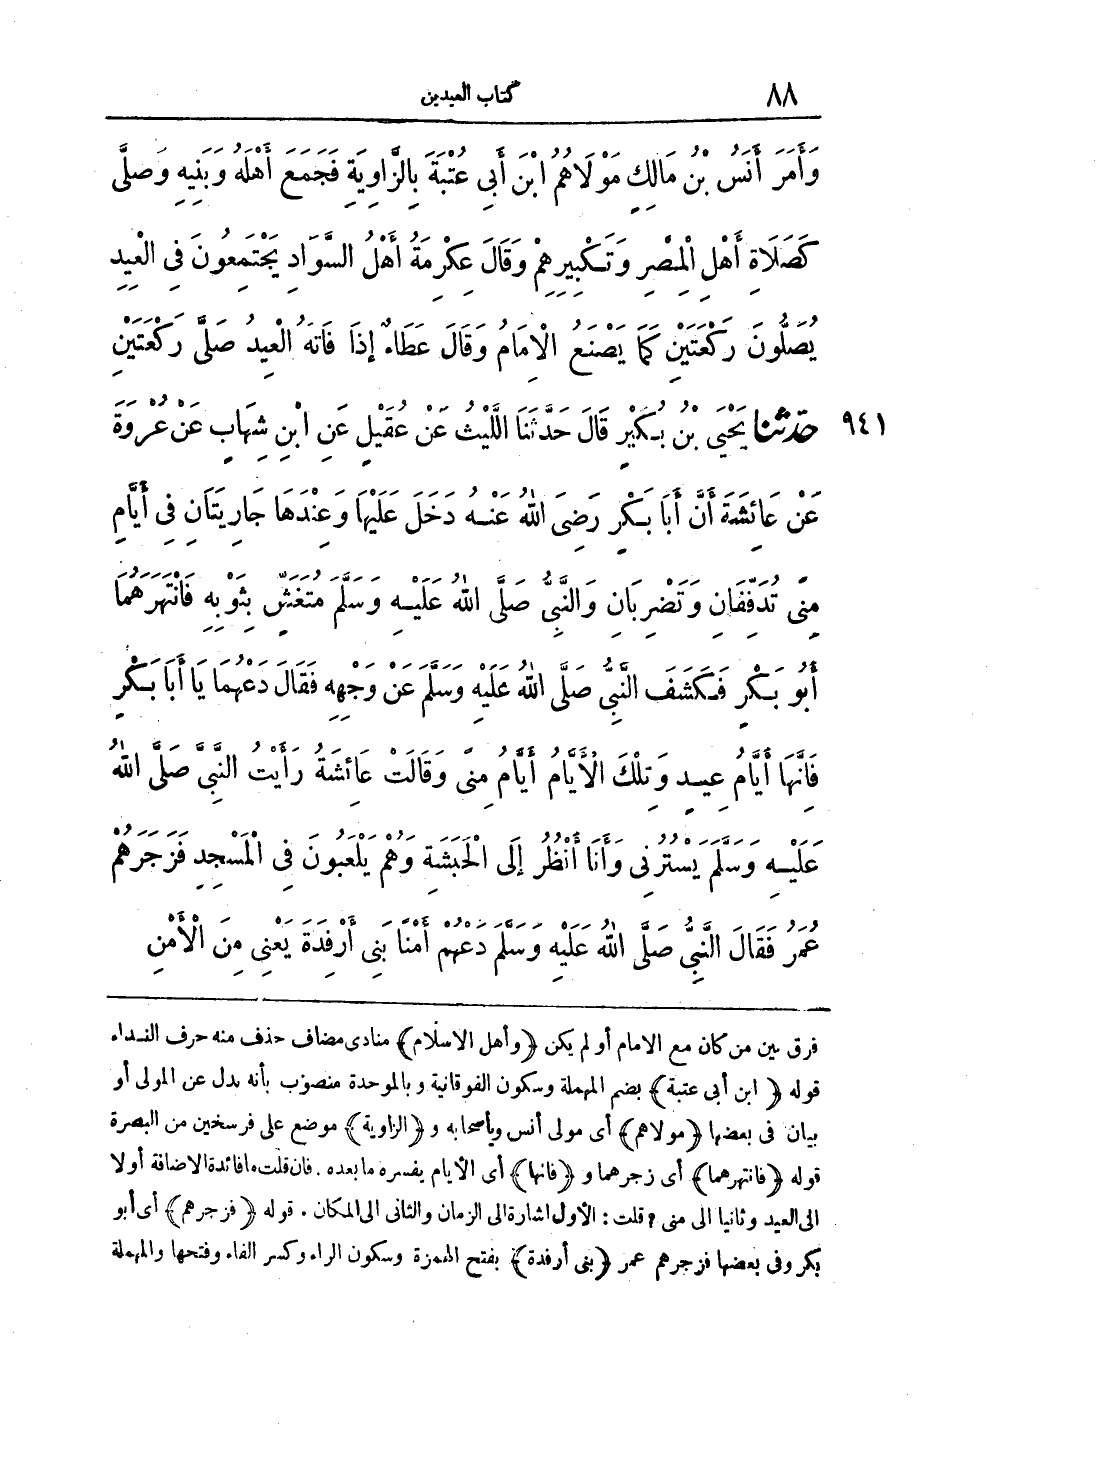 ٨٨ كتاب العيدين
وَأَمَرَ أَنَسُ بْنُ مَالِكٍ مَوْلَاهُمُ ابْنَ أَبِي عُتْبَةَ بِالزَّاوِيَةِ فَجَمَعَ أَهْلَهُ وَبَنِيهِ وَصَلَّى
كَصَلَاةِ أَهْلِ الْمِصْرِ وَتَكْبِيرِهِمْ وَقَالَ عِكْرِمَةُ أَهْلُ السَّوَادِ يَجْتَمِعُونَ فِي الْعِيدِ
يُصَلُّونَ رَكْعَتَيْنِ كَمَا يَصْنَعُ الْإِمَامُ وَقَالَ عَطَاءٌ إِذَا فَاتَهُ الْعِيدُ صَلَّى رَكْعَتَيْنِ
٩٤١ حَدَّثَنَا يَحْيَى بْنُ بُكَيْرٍ قَالَ حَدَّثَنَا اللَّيْثُ عَنْ عُقَيْلٍ عَنِ ابْنِ شِهَابٍ عَنْ عُرْوَةَ
عَنْ عَائِشَةَ أَنَّ أَبَا بَكْرٍ رَضِيَ اللهُ عَنْهُ دَخَلَ عَلَيْهَا وَعِنْدَهَا جَارِيَتَانِ فِي أَيَّامِ
مِنًى تُدَفِّفَانِ وَتَضْرِبَانِ وَالنَّبِيُّ صَلَّى اللهُ عَلَيْهِ وَسَلَّمَ مُتَغَشٍّ بِثَوْبِهِ فَانْتَهَرَهُمَا
أَبُو بَكْرٍ فَكَشَفَ النَّبِيُّ صَلَّى اللهُ عَلَيْهِ وَسَلَّمَ عَنْ وَجْهِهِ فَقَالَ دَعْهُمَا يَا أَبَا بَكْرٍ
فَإِنَّهَا أَيَّامُ عِيدٍ وَتِلْكَ الْأَيَّامُ أَيَّامُ مِنًى وَقَالَتْ عَائِشَةُ رَأَيْتُ النَّبِيَّ صَلَّى اللهُ
عَلَيْهِ وَسَلَّمَ يَسْتُرُنِي وَأَنَا أَنْظُرُ إِلَى الْحَبَشَةِ وَهُمْ يَلْعَبُونَ فِي الْمَسْجِدِ فَزَجَرَهُمْ
عُمَرُ فَقَالَ النَّبِيُّ صَلَّى اللهُ عَلَيْهِ وَسَلَّمَ دَعْهُمْ أَمْنًا بَنِي أَرْفِدَةَ يَعْنِي مِنَ الْأَمْنِ
فرق بين من كان مع الامام أو لم يكن ﴿وأهل الاسلام﴾ منادى مضاف حذف منه حرف النداء
قوله ﴿ابن أبى عتبة﴾ بضم المهملة وسكون الفوقانية وبالموحدة منصوب بأنه بدل عن المولى أو
بيان فى بعضها ﴿مولاهم﴾ أى مولى أنس وأصحابه و﴿الزاوية﴾ موضع على فرسخين من البصرة
قوله ﴿فانتهرهما﴾ أى زجرهما و﴿فانها﴾ أى الأيام يفسره ما بعده. فان قلت ما فائدة الاضافة أولا
الى العيد وثانيا الى منى؟ قلت: الأول اشارة الى الزمان والثانى الى المكان. قوله ﴿فزجرهم﴾ أى أبو
بكر وفى بعضها فزجرهم عمر ﴿بنى أرفدة﴾ بفتح الهمزة وسكون الراء وكسر الفاء وفتحها والمهملة